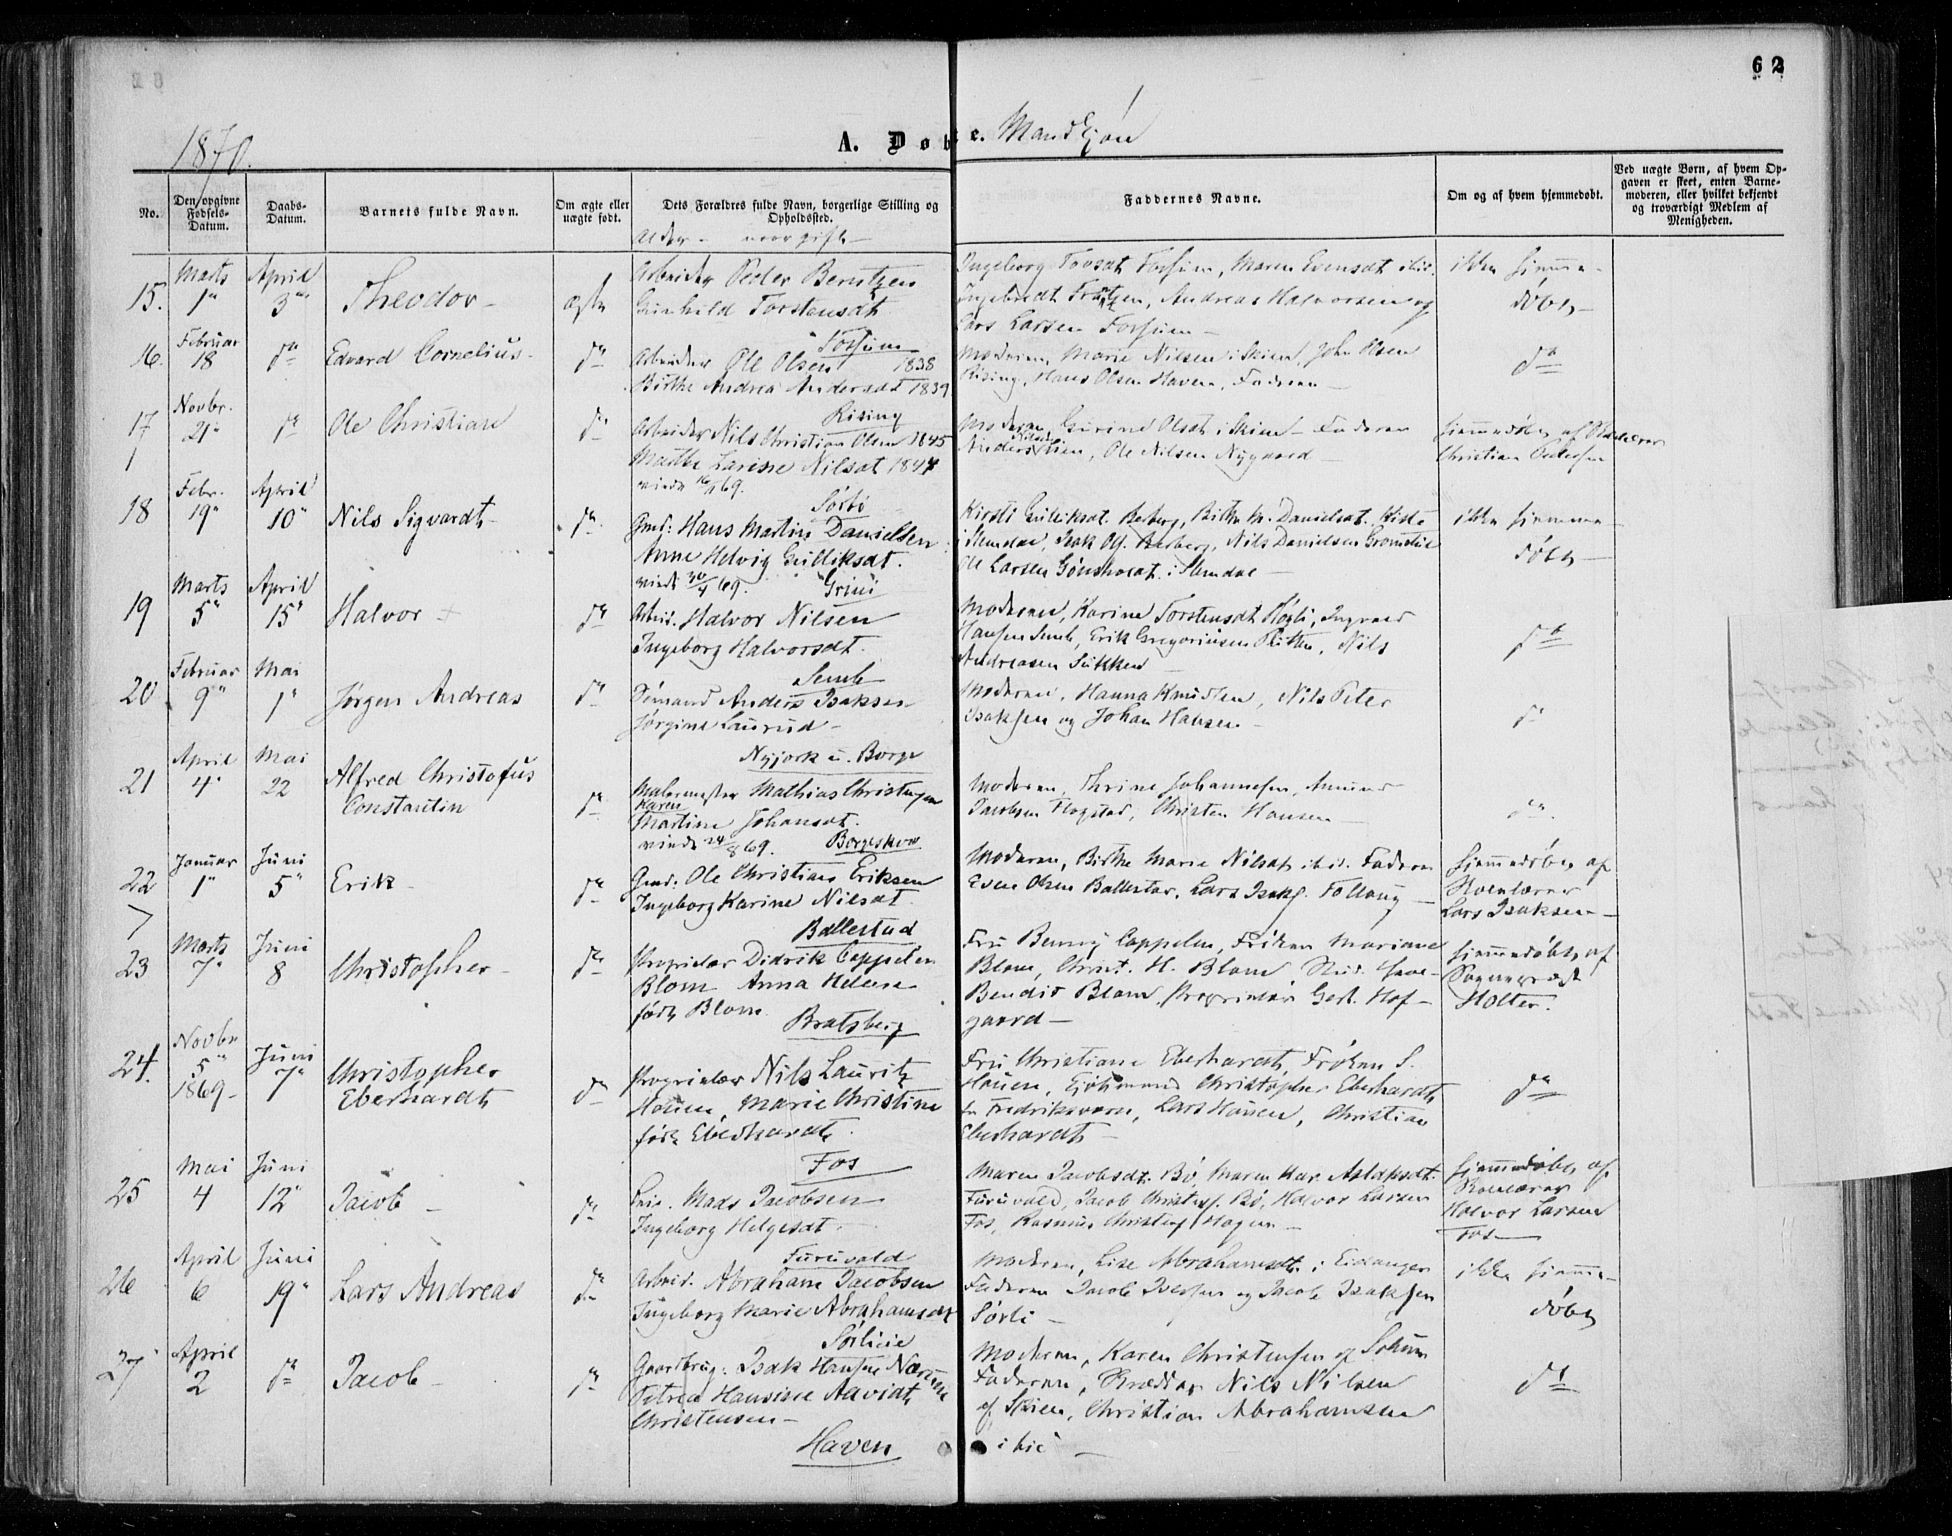 62
1870.
A. Døbte. Mandkjøn
No.
Den opgivne Fødsels-Datum.
Daabs-Datum.
Barnets fulde Navn.
Om ægte eller uægte født.
Dets Forældres fulde Navn, borgerlige Stilling og Opholdssted.
Alder - naar gift -
Faddernes Navne.
Om og af hvem hjemmedøbt.
Ved uægte Børn, af hvem Opgaven er skeet, enten Barnemoderen, eller hvilket bekjendt og troværdigt Medlem af Menigheden.
15. Marts 1" April 3" Theodor - ægte
Arbeider Peder Berntzen
Gunhild Torstensdt
Fossum
Ingeborg Fossum, Maren Evensdt ibid.
Andreas Halvorsen og
Lars Larsen Fossum -
ikke hjemme-
døbt -
16. Februar 18 do Edvard Cornelius - do
Arbeider Ole Olsen 1838
Birthe Andrea Andersdt 1839
Rising
Moderen, Marie Nilsen i Skien, John Olsen
Rising, Hans Olsen Haven, Faderen -
do
17 Novbr. 21" do Ole Christian do
Arbeider Nils Christian Olsen 1845
Marthe Larine Nilsdt 1844
viede 69.
Sørbø
Moderen, Gurine Olsdt i Skien - Faderen
Anders, Ole Nilsen Nygaard -
hjemmedøbt af
Christian
18 Febr. 19" April 10" Nils Sigvardt - do
Gmd: Hans Martin Danielsen
Anne Helvig Gulliksdt.
viede 30/4 69. Grini
Kirsti Gulliksdt. Berberg, Birthe M. Danielsdt.
i Slemdal, Isak Berberg, Nils Danielsen
Ole Larsen i Slemdal -
ikke hjemme
døbt -
19 Marts 5" April 15" Halvor + do
Arbeid. Halvor Nilsen
Ingeborg Halvorsdt.
Semb
Moderen, Karine Torstensdt Høgli, Ingvald
Hansen Semb, Erik Gregoriusen, Nils
Andreasen
do
20 Februar 9" Mai 1" Jørgen Andreas do
Sømand Anders Isaksen
Jørgine Laurud -
Nyjork u. Borge
Moderen, Hanna Knudsen, Nils Peter
Isaksen og Johan Hansen -
do
21 April 4" Mai 22 Alfred Christofus
Constantin do
Malermester Mathias Christensen
Karen
Martine Johansdt.
viede 24/8 69. Borgeskov
Moderen, Thrine Johannesen,
Jacobsen Flogstad, Christen Hansen -
do
22 Januar 1" Juni 5" Erik - do
Gmd: Ole Christian Eriksen
Ingeborg Karine Nilsdt.
Ballestad
Moderen, Birthe Marie Nilsdt ibid. Faderen
Even Olsen Ballestad, Lars Isaks. Follaug -
hjemmedøbt af
Skolelærer
Lars Isaksen -
23 Marts 7" Juni 8 Christopher - do
Proprietær Didrik Cappelen
Blom Anna Helene
født Blom
Bratsberg
Fru Benny Cappelen, Frøken Mariane
Blom, Christ. H. Blom Stud.
Bendix Blom, Proprietær Gert. Hof-
gaard -
hjemmedøbt af
Sognepræst
Holter.
24. Novbr 5" 1869 - Juni 7" Christopher
Eberhardt do
Proprietær Nils Lauritz
Houen, Marie Christine
født Eberhardt.
Fos
Fru Christiane Eberhardt, Frøken S.
Houen, Christopher Eberhardt
fra Fredriksværn, Lars Houen, Christian
Eberhardt -
do
25 Mai 4 Juni 12" Jacob - do
Mads Jacobsen
Ingeborg Helgesdt.
Furuvald
Maren Jacobsdt. Bø, Maren Kar. Aslaksdt.
Furuvald, Jacob Christens. Bø, Halvor Larsen
Fos, Rasmus Christens. Hagen -
hjemmedøbt af
Skolelærer
Halvor Larsen
Fos -
26 April 6 Juni 19" Lars Andreas do
Arbeid. Abraham Jacobsen
Ingeborg Marie Abrahamsdt
Sørlieie
Moderen, Lise Abrahamsdt. i Eidanger
Faderen Jacob Iversen og Jacob Isaksen
Sørli -
ikke hjemme-
døbt
27 April 2 do Jacob - do
Gaardbrug: Isak Hansen Næsum
Petrea Hansine
Christensen -
Haven
Moderen, Karen Christensen af Solum
Faderen, Skrædder Nils Nilsen
af Skien, Christian Abrahamsen
ibid -
do